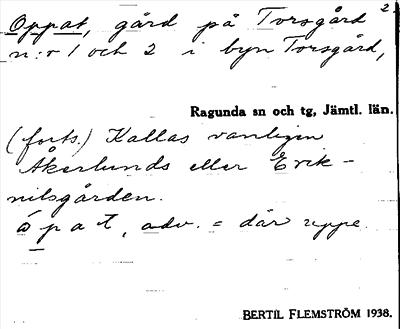 Oppat, gård på Torsgård 2
n:r 1 och 2 i byn Torsgård,
Ragunda sn och tg, Jämtl. län.
(forts.) Kallas vanligen
Åkerlunds eller Erik-
nilsgården.
å̀pat, adv. = där uppe.
BERTIL FLEMSTRÖM 1938.